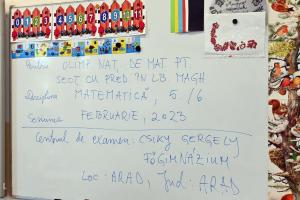 Pentru OLIMP. NAT. DE MAT. PT.
SECT. CU PRED. ÎN LB. MAGH
Disciplina MATEMATICĂ, 5./6
Semnul FEBRUARIE, 2023
Centrul de examen: CSIKY GERGELY
FŐGIMNÁZIUM
Loc: ARAD, Jud: ARAD